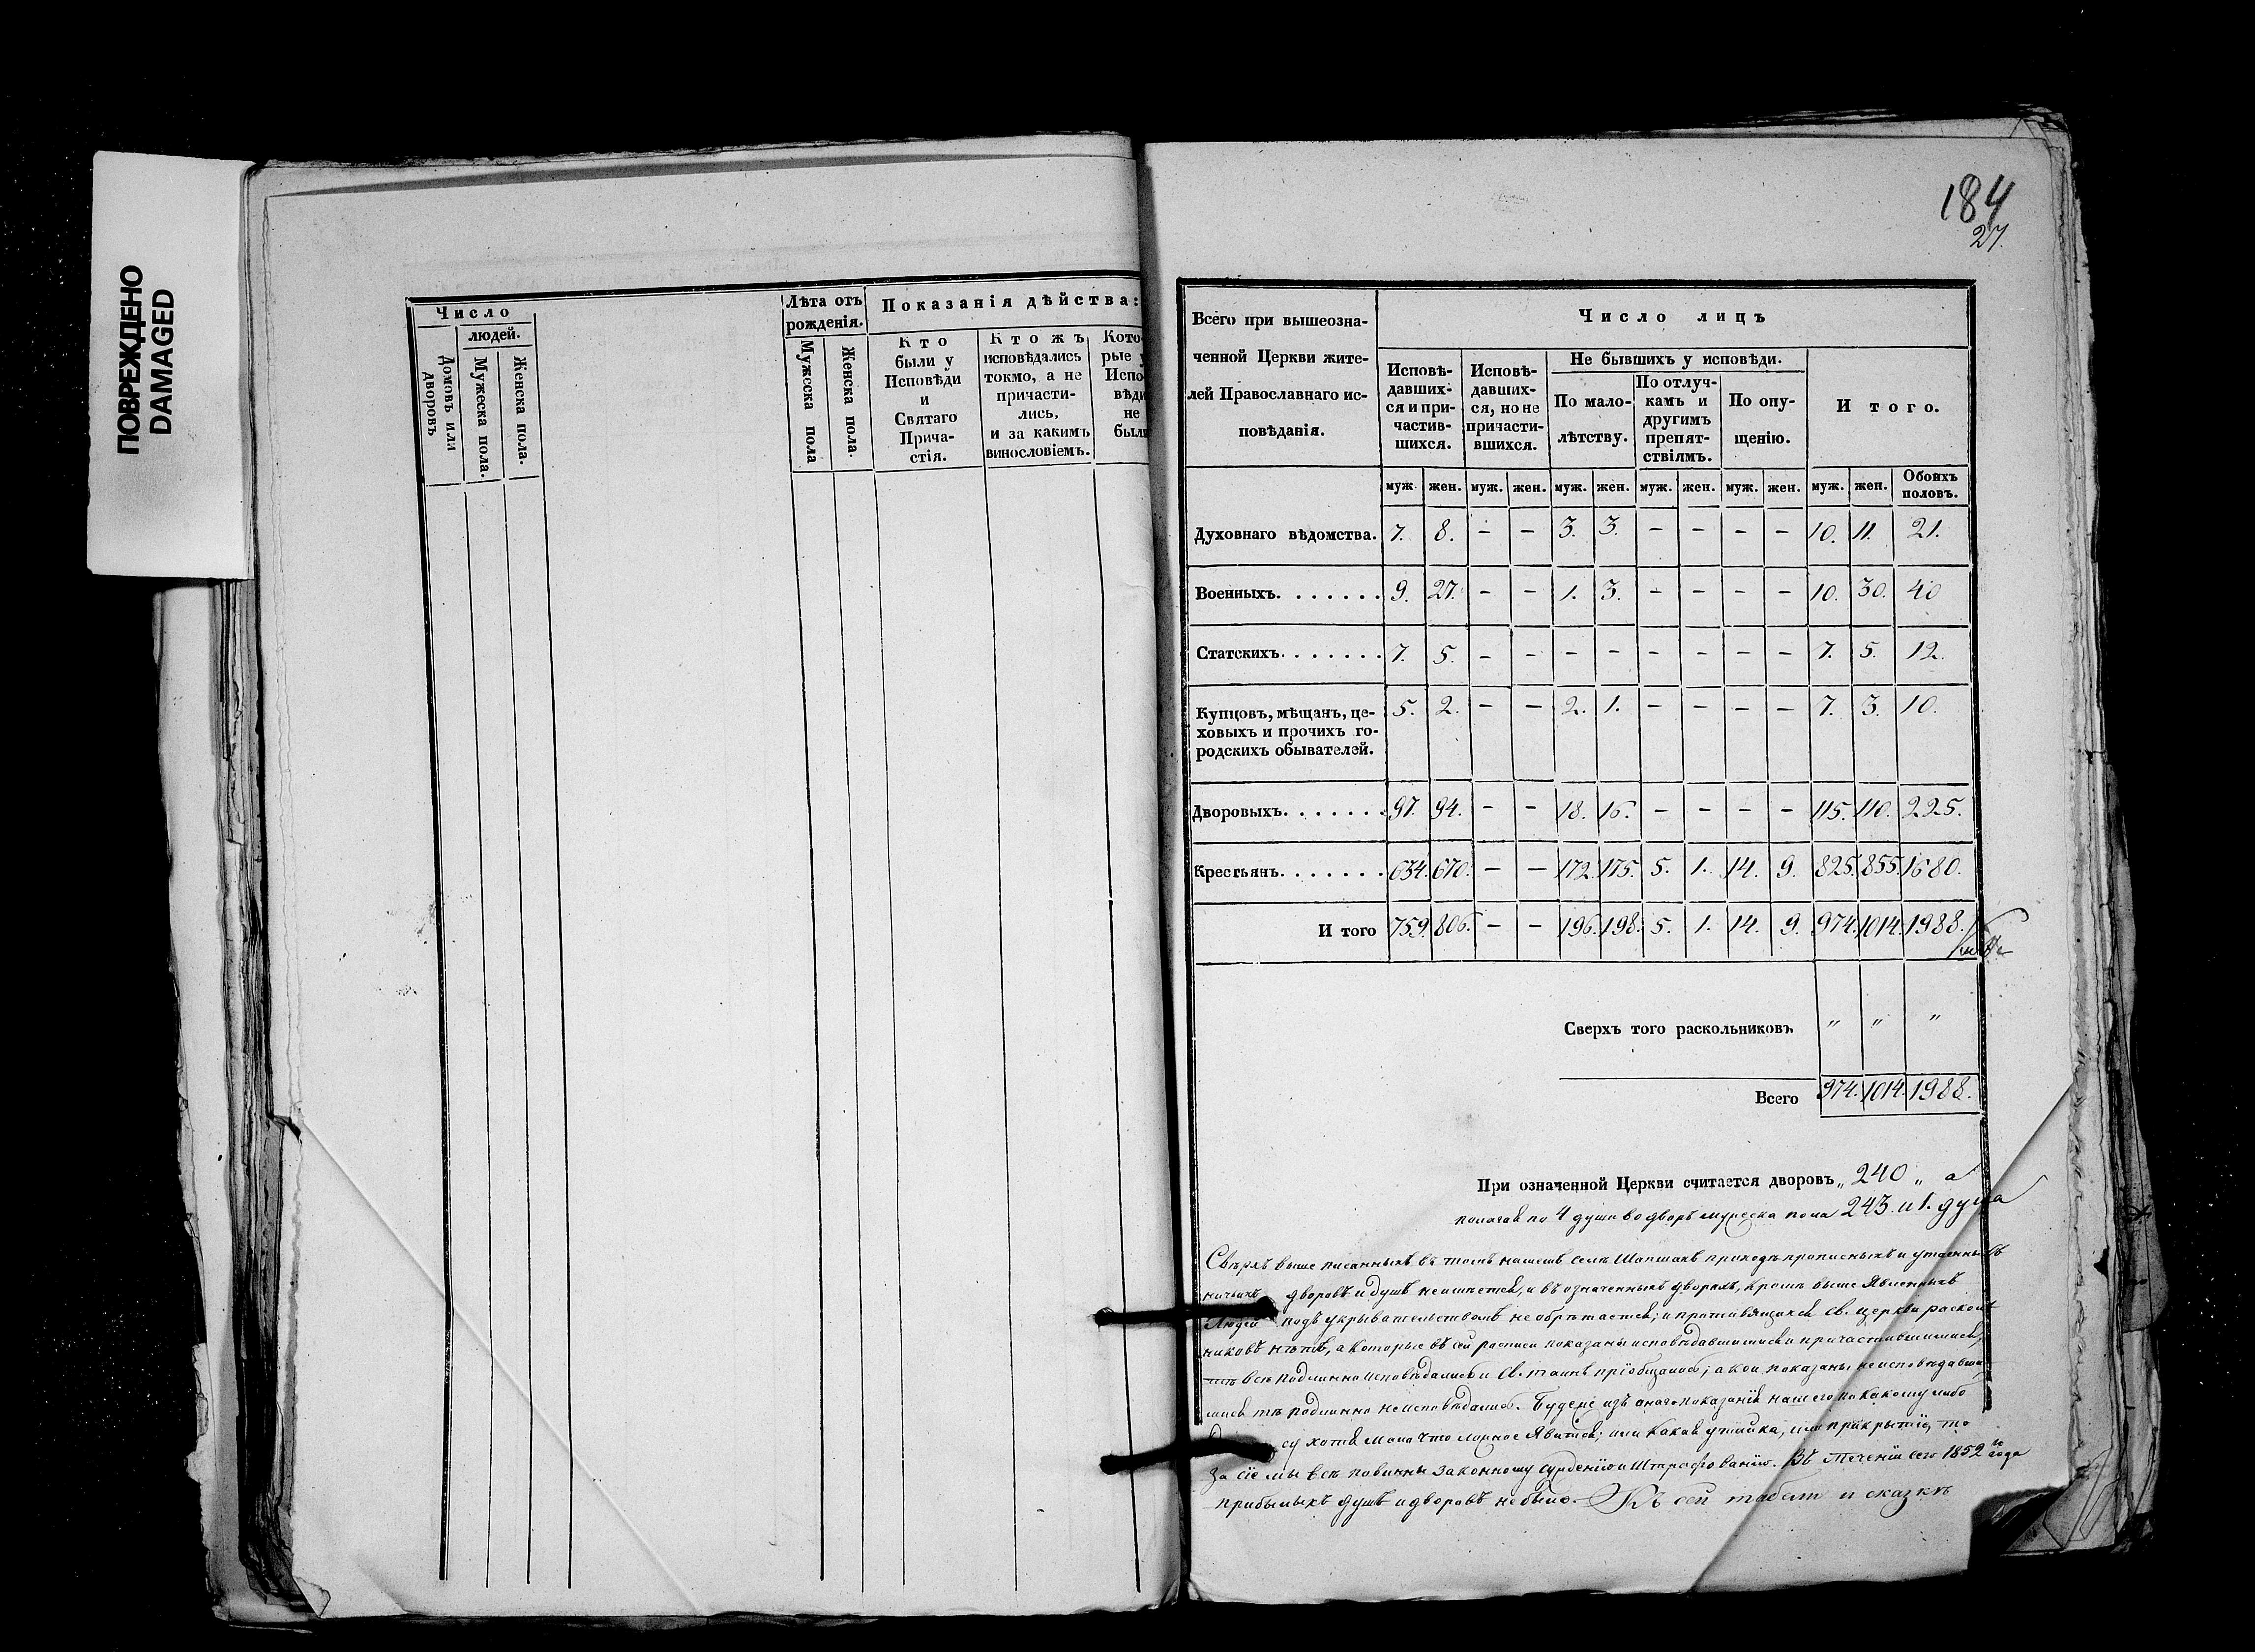 ПОВРЕЖДЕНО
DAMAGED
Число
людей.
Домовъ или дворовъ
Мужеска пола.
Женска пола.
Лѣта отъ рожденія.
Мужеска пола
Женска пола.
Показанія дѣйства:
Кто были у Исповѣди и Святаго Прича-стія.
Ктожъ исповѣдались токмо, а не причасти-лись, и за какимъ винословіемъ.
Кото рые у Испо вѣди не были
184
27.
Всего при вышеозна-
ченной Церкви жите-
лей Православнаго ис-
повѣданія.
Число лицъ
Исповѣ-давших-ся и при-частив-шихся.
Исповѣ-давших-ся, но не причасти-вшихся.
Не бывшихъ у исповѣди.
По мало-лѣтству.
По отлуч-камъ и другимъ препят-ствіямъ.
По опу-щенію.
И того.
муж. жен. муж. жен. муж. жен. муж. жен. муж. жен. муж. жен. Обоихъ половъ.
Духовнаго вѣдомства. 7. 8. – – 3. 3. – – – – 10. 11. 21.
Военныхъ. . . . . . . 9. 27. – – 1. 3. – – – – 10. 30. 40
Статскихъ. . . . . . . 7. 5. – – – – – – – – 7. 5. 12.
Купцовъ, мѣщанъ, це-
ховыхъ и прочихъ го-
родскихъ обывателей. 5. 2. – – 2. 1. – – – – 7. 3. 10.
Дворовыхъ. . . . . . . 97. 94. – – 18. 16. – – – – 115. 110. 225.
Крестьянъ. . . . . . . 634. 670. – – 172. 175. 5. 1. 14. 9. 825. 855. 1680.
И того 759. 806. – – 196. 198. 5. 1. 14. 9. 974. 1014. 1988.
Сверхъ того раскольниковъ „ „ „
Всего 974. 1014. 1988.
При означенной Церкви считается дворовъ „ 240 „ а
полагая по 4 души во дворъ мужеска пола 243. и 1. душа
Сверхъ выше писанныхъ въ томъ нашемъ селѣ Шапшахъ приходѣ прописныхъ и утаенныхъ
ничьихъ дворовъ и душъ неимѣется, и въ означенныхъ дворахъ, кромѣ выше явленныхъ
людей подъ укрывательствомъ не обрѣтается; и противящихся Св. церкви расколь
никовъ нѣтъ, а которые въ сей росписи показаны исповѣдавшимися и причастившимися,
тѣ всѣ подлинно исповѣдались и Св. таинъ пріобщались; а кои показаны неисповѣдавши
мися тѣ подлинно неисповѣдались. Будеже изъ онаго показанія нашего по какому либо
су хотя мало что ложное явится; или какая утайка, или прикрытіе, то
за сіе мы всѣ повинны законному сужденію и штрафованію. Въ теченіи сего 1852го года
прибылыхъ душъ и дворовъ не было. Къ сей табели и сказкѣ